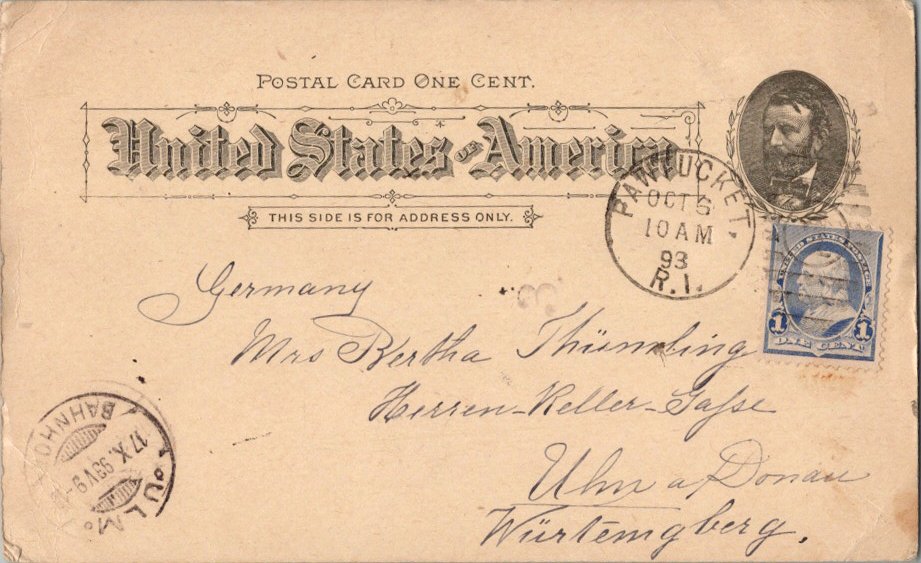 POSTAL CARD ONE CENT.
United States of America
THIS SIDE IS FOR ADDRESS ONLY.
PAWTUCKET,
OCT 6
10 AM
93
R.I.
UNITED STATES POSTAGE
1 1
ONE CENT
Germany
Mrs Bertha Thümling
Herren-Keller-Gaſse
Ulm a Donau
Würtemgberg.
ULM.
17.X.93.V9-
BAHNHOF